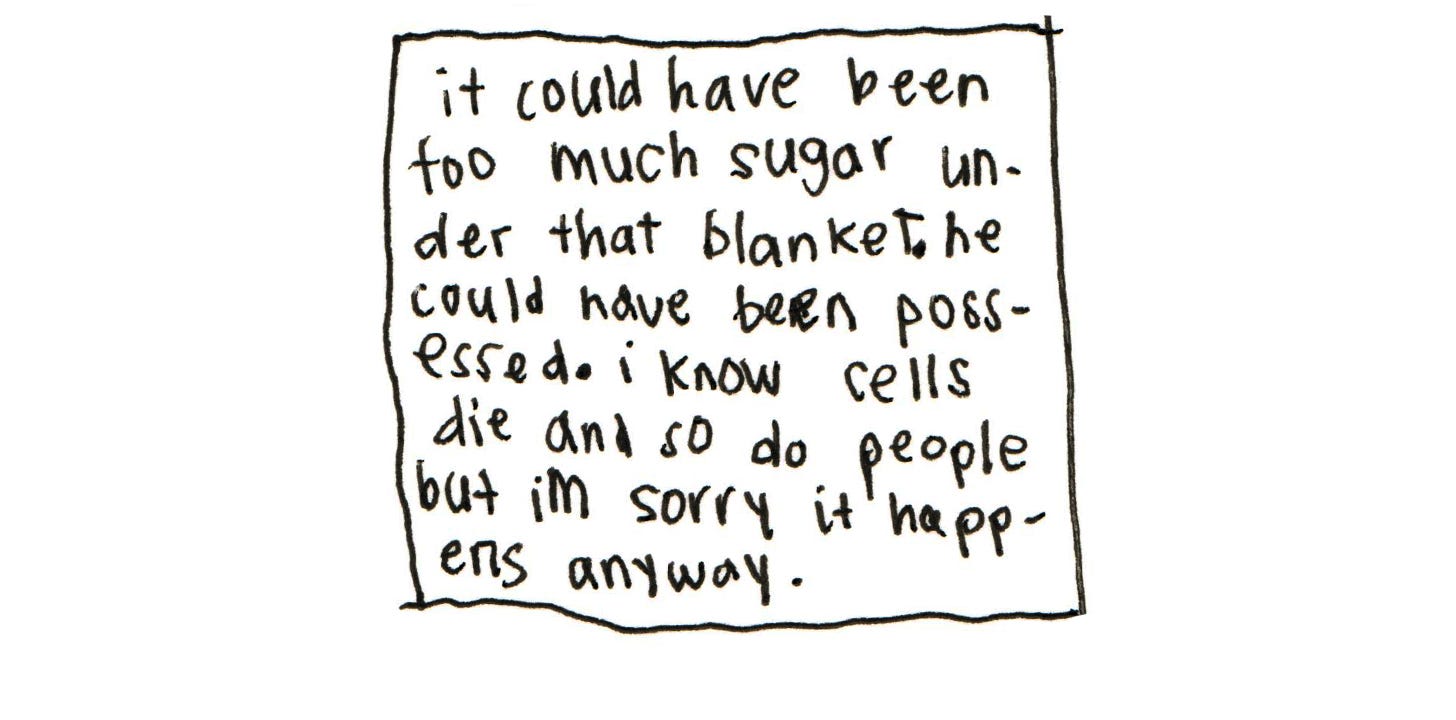 it could have been
too much sugar un-
der that blanket. he
could have been poss-
essed. i know cells
die and so do people
but im sorry it happ-
ens anyway.